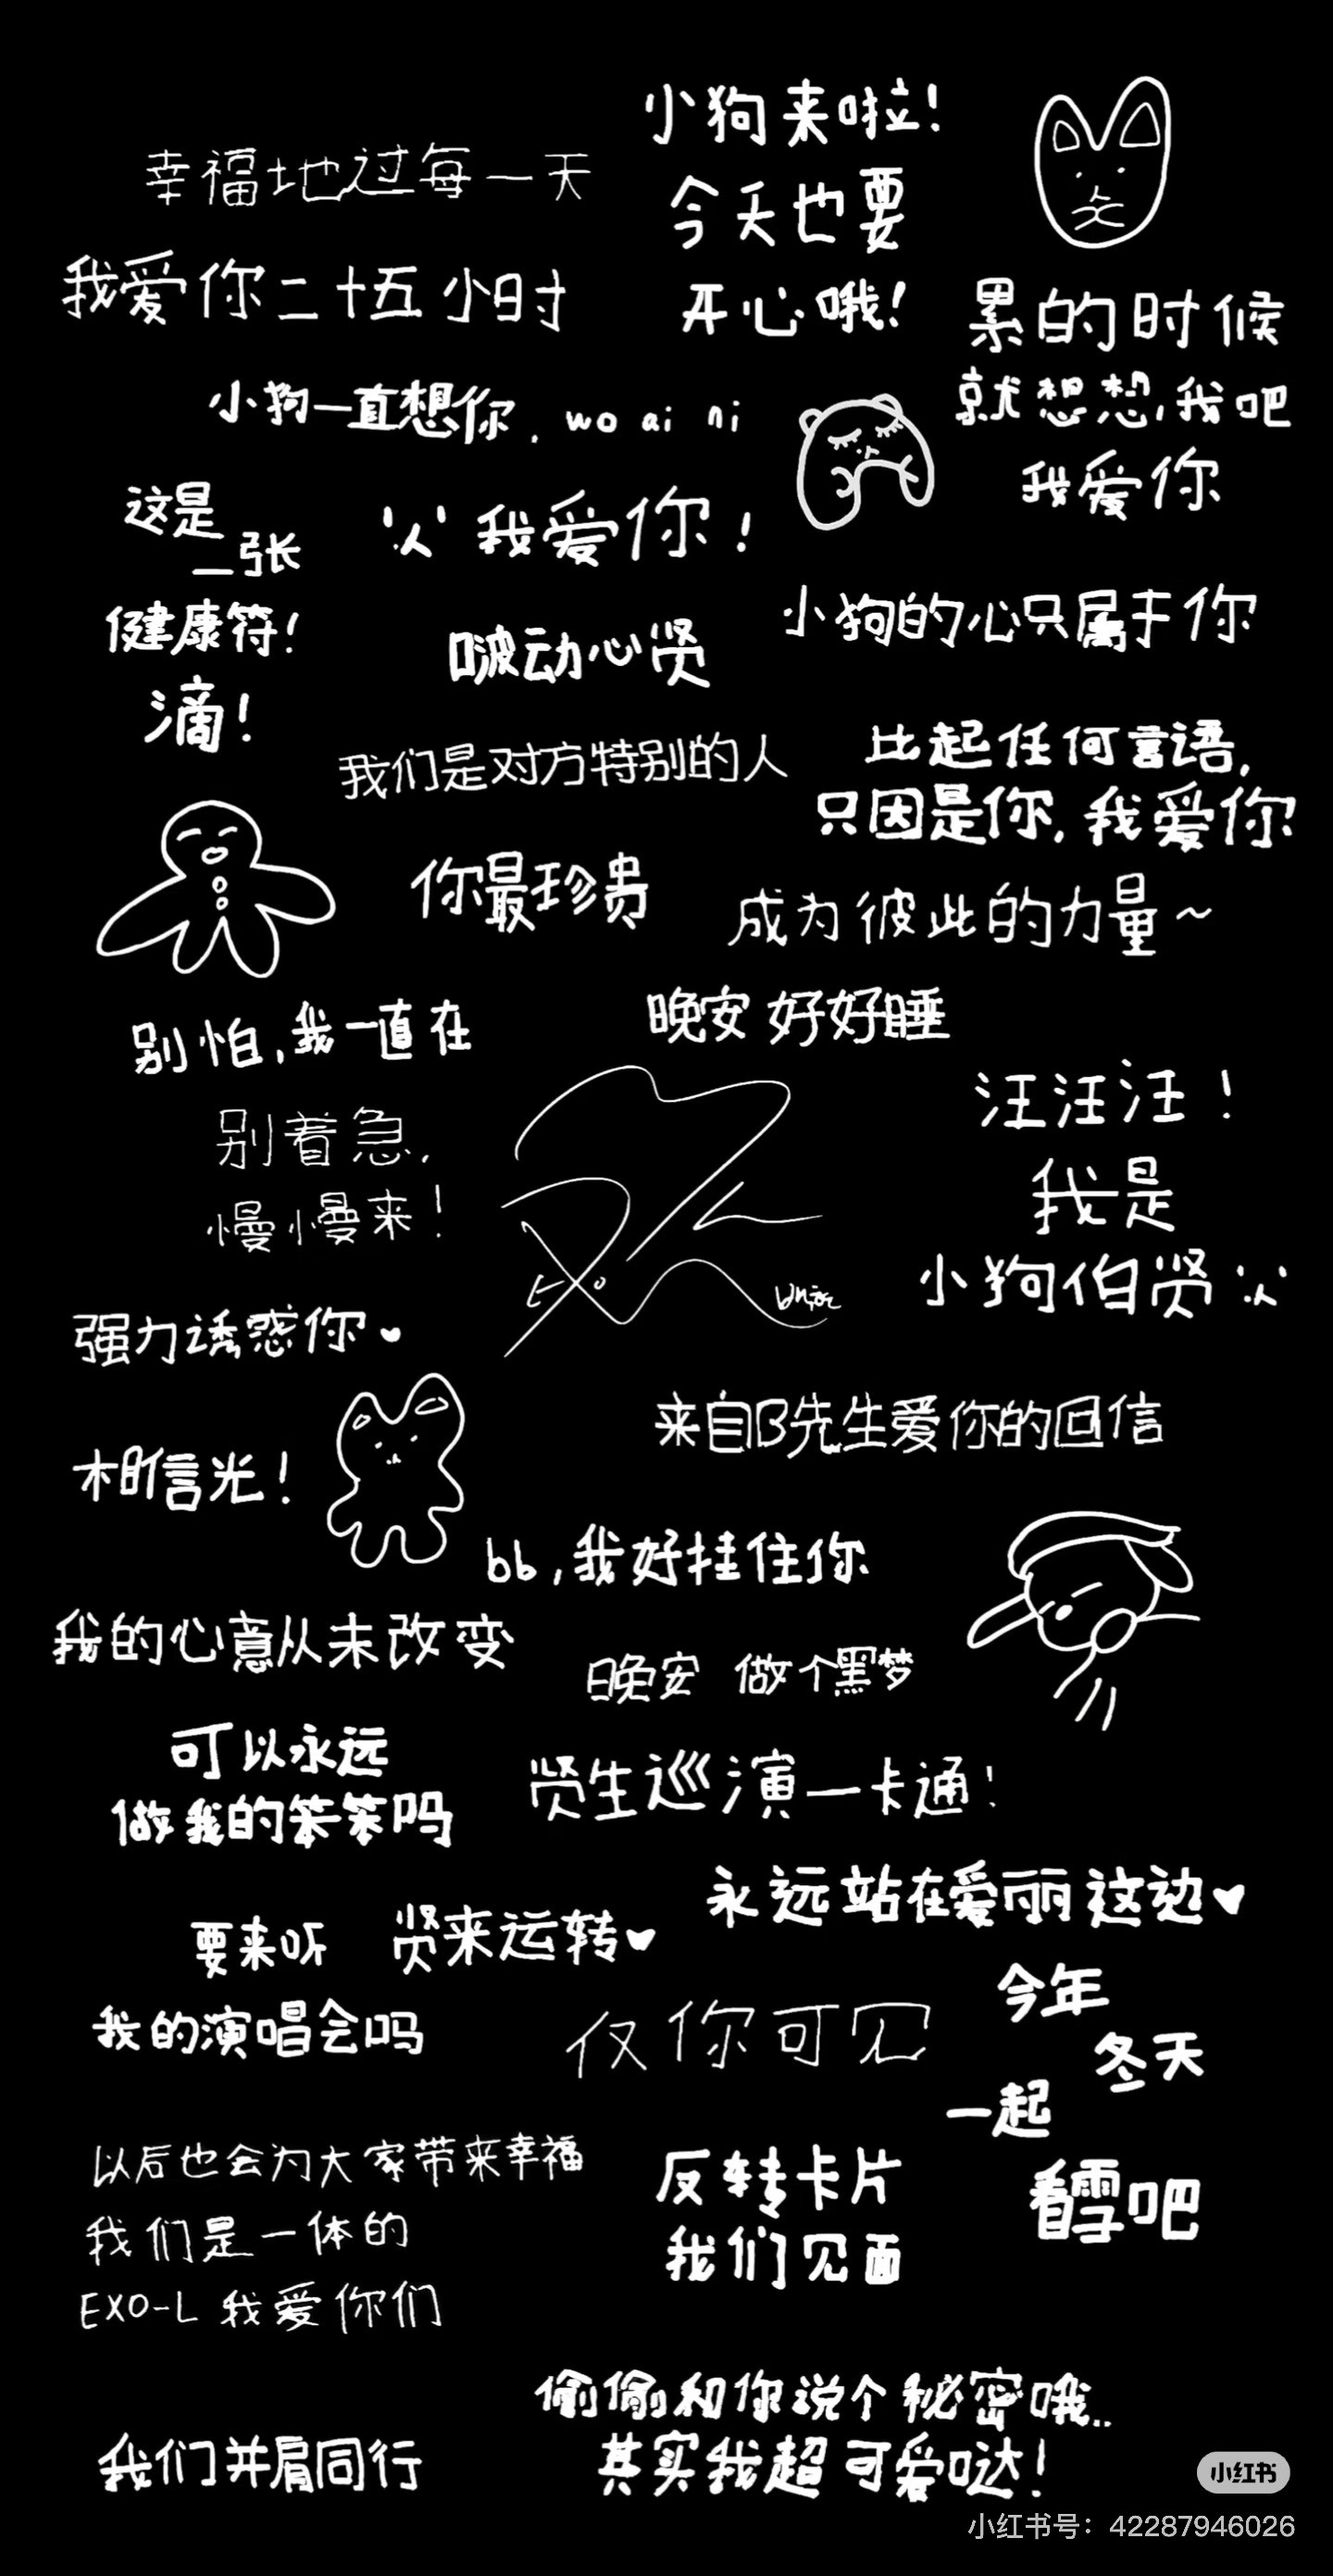 幸福地过每一天
小狗来啦！
今天也要
开心哦！
我爱你二十五小时
累的时候
就想想我吧
我爱你
小狗一直想你. wo ai ni
这是
一张
健康符！
滴！
我爱你！
小狗的心只属于你
啵动心贤
我们是对方特别的人
比起任何言语，
只因是你，我爱你
你最珍贵
成为彼此的力量~
别怕，我一直在
晚安 好好睡
别着急，
慢慢来！
汪汪汪！
我是
小狗伯贤
强力诱惑你♥
来自B先生爱你的回信
相信光！
bb，我好挂住你
我的心意从未改变
晚安 做个黑梦
可以永远
做我的笨笨吗
贤生巡演一卡通！
永远站在爱丽这边♥
要来听
我的演唱会吗
贤来运转♥
仅你可见
今年
冬天
一起
看雪吧
以后也会为大家带来幸福
我们是一体的
EXO-L 我爱你们
反转卡片
我们见面
偷偷和你说个秘密哦..
其实我超可爱哒！
我们并肩同行
小红书
小红书号：42287946026